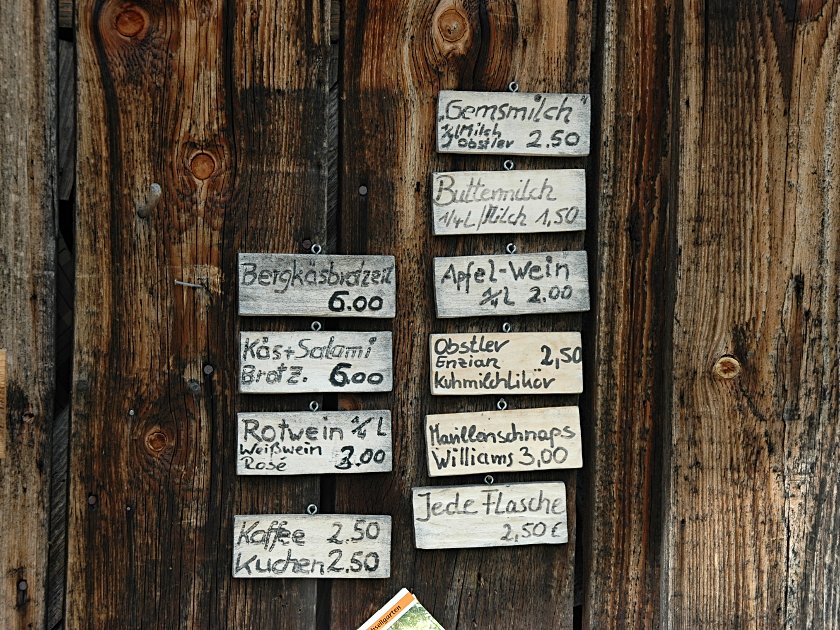 Bergkäsbrotzeit
6.00
Käs+Salami
Brotz. 6.00
Rotwein 1/4 L
Weißwein
Rosé 3.00
Kaffee 2.50
Kuchen 2.50
„Gemsmilch“
Milch
Obstler 2.50
Buttermilch
1/4 L/Milch 1,50
Apfel-Wein
1/4 L 2.00
Obstler 2,50
Enzian
Kuhmilchlikör
Marillenschnaps
Williams 3,00
Jede Flasche
2,50 €